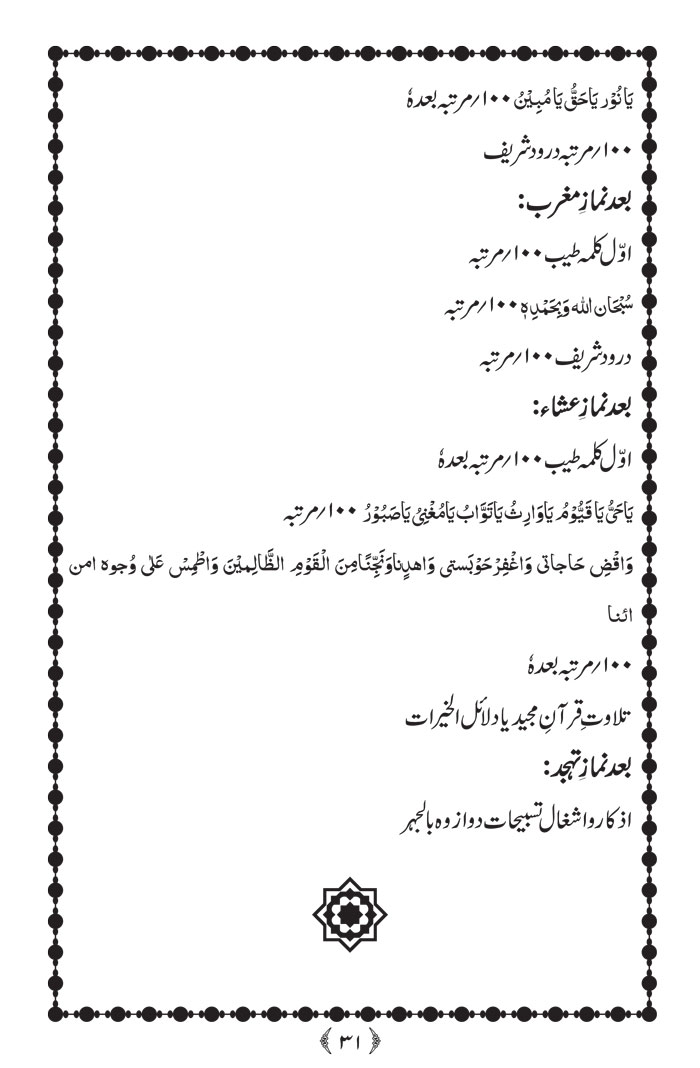 يَا نُوْر يَاحَقُّ يَا مُبِيْنُ ۱۰۰؍مرتبہ بعدہٗ
۱۰۰؍مرتبہ درود شریف
بعد نمازِ مغرب:
اوّل کلمہ طیب ۱۰۰؍مرتبہ
سُبْحَان اللہ وَبِحَمْدِہٖ ۱۰۰؍مرتبہ
درود شریف ۱۰۰؍مرتبہ
بعد نمازِ عشاء:
اوّل کلمہ طیب ۱۰۰؍مرتبہ بعدہٗ
يَاحَیُّ يَا قَيُّوْمُ يَاوَارِثُ يَاتَوَّابُ يَامُغْنِیْ يَاصَبُوْرُ ۱۰۰؍مرتبہ
وَاقْضِ حَاجاتی وَاغْفِرْ حَوْبَستی وَاهدِناوَنَجِّنَّامِنَ الْقَوْمِ الظَّالِمِيْنَ وَاطْمِسْ عَلٰی وُجوه امن
ائنا
۱۰۰؍مرتبہ بعدہٗ
تلاوتِ قرآنِ مجید یا دلائل الخیرات
بعد نمازِ تہجد:
اذکار و اشغال تسبیحات دوازدہ بالجہر
۳۱